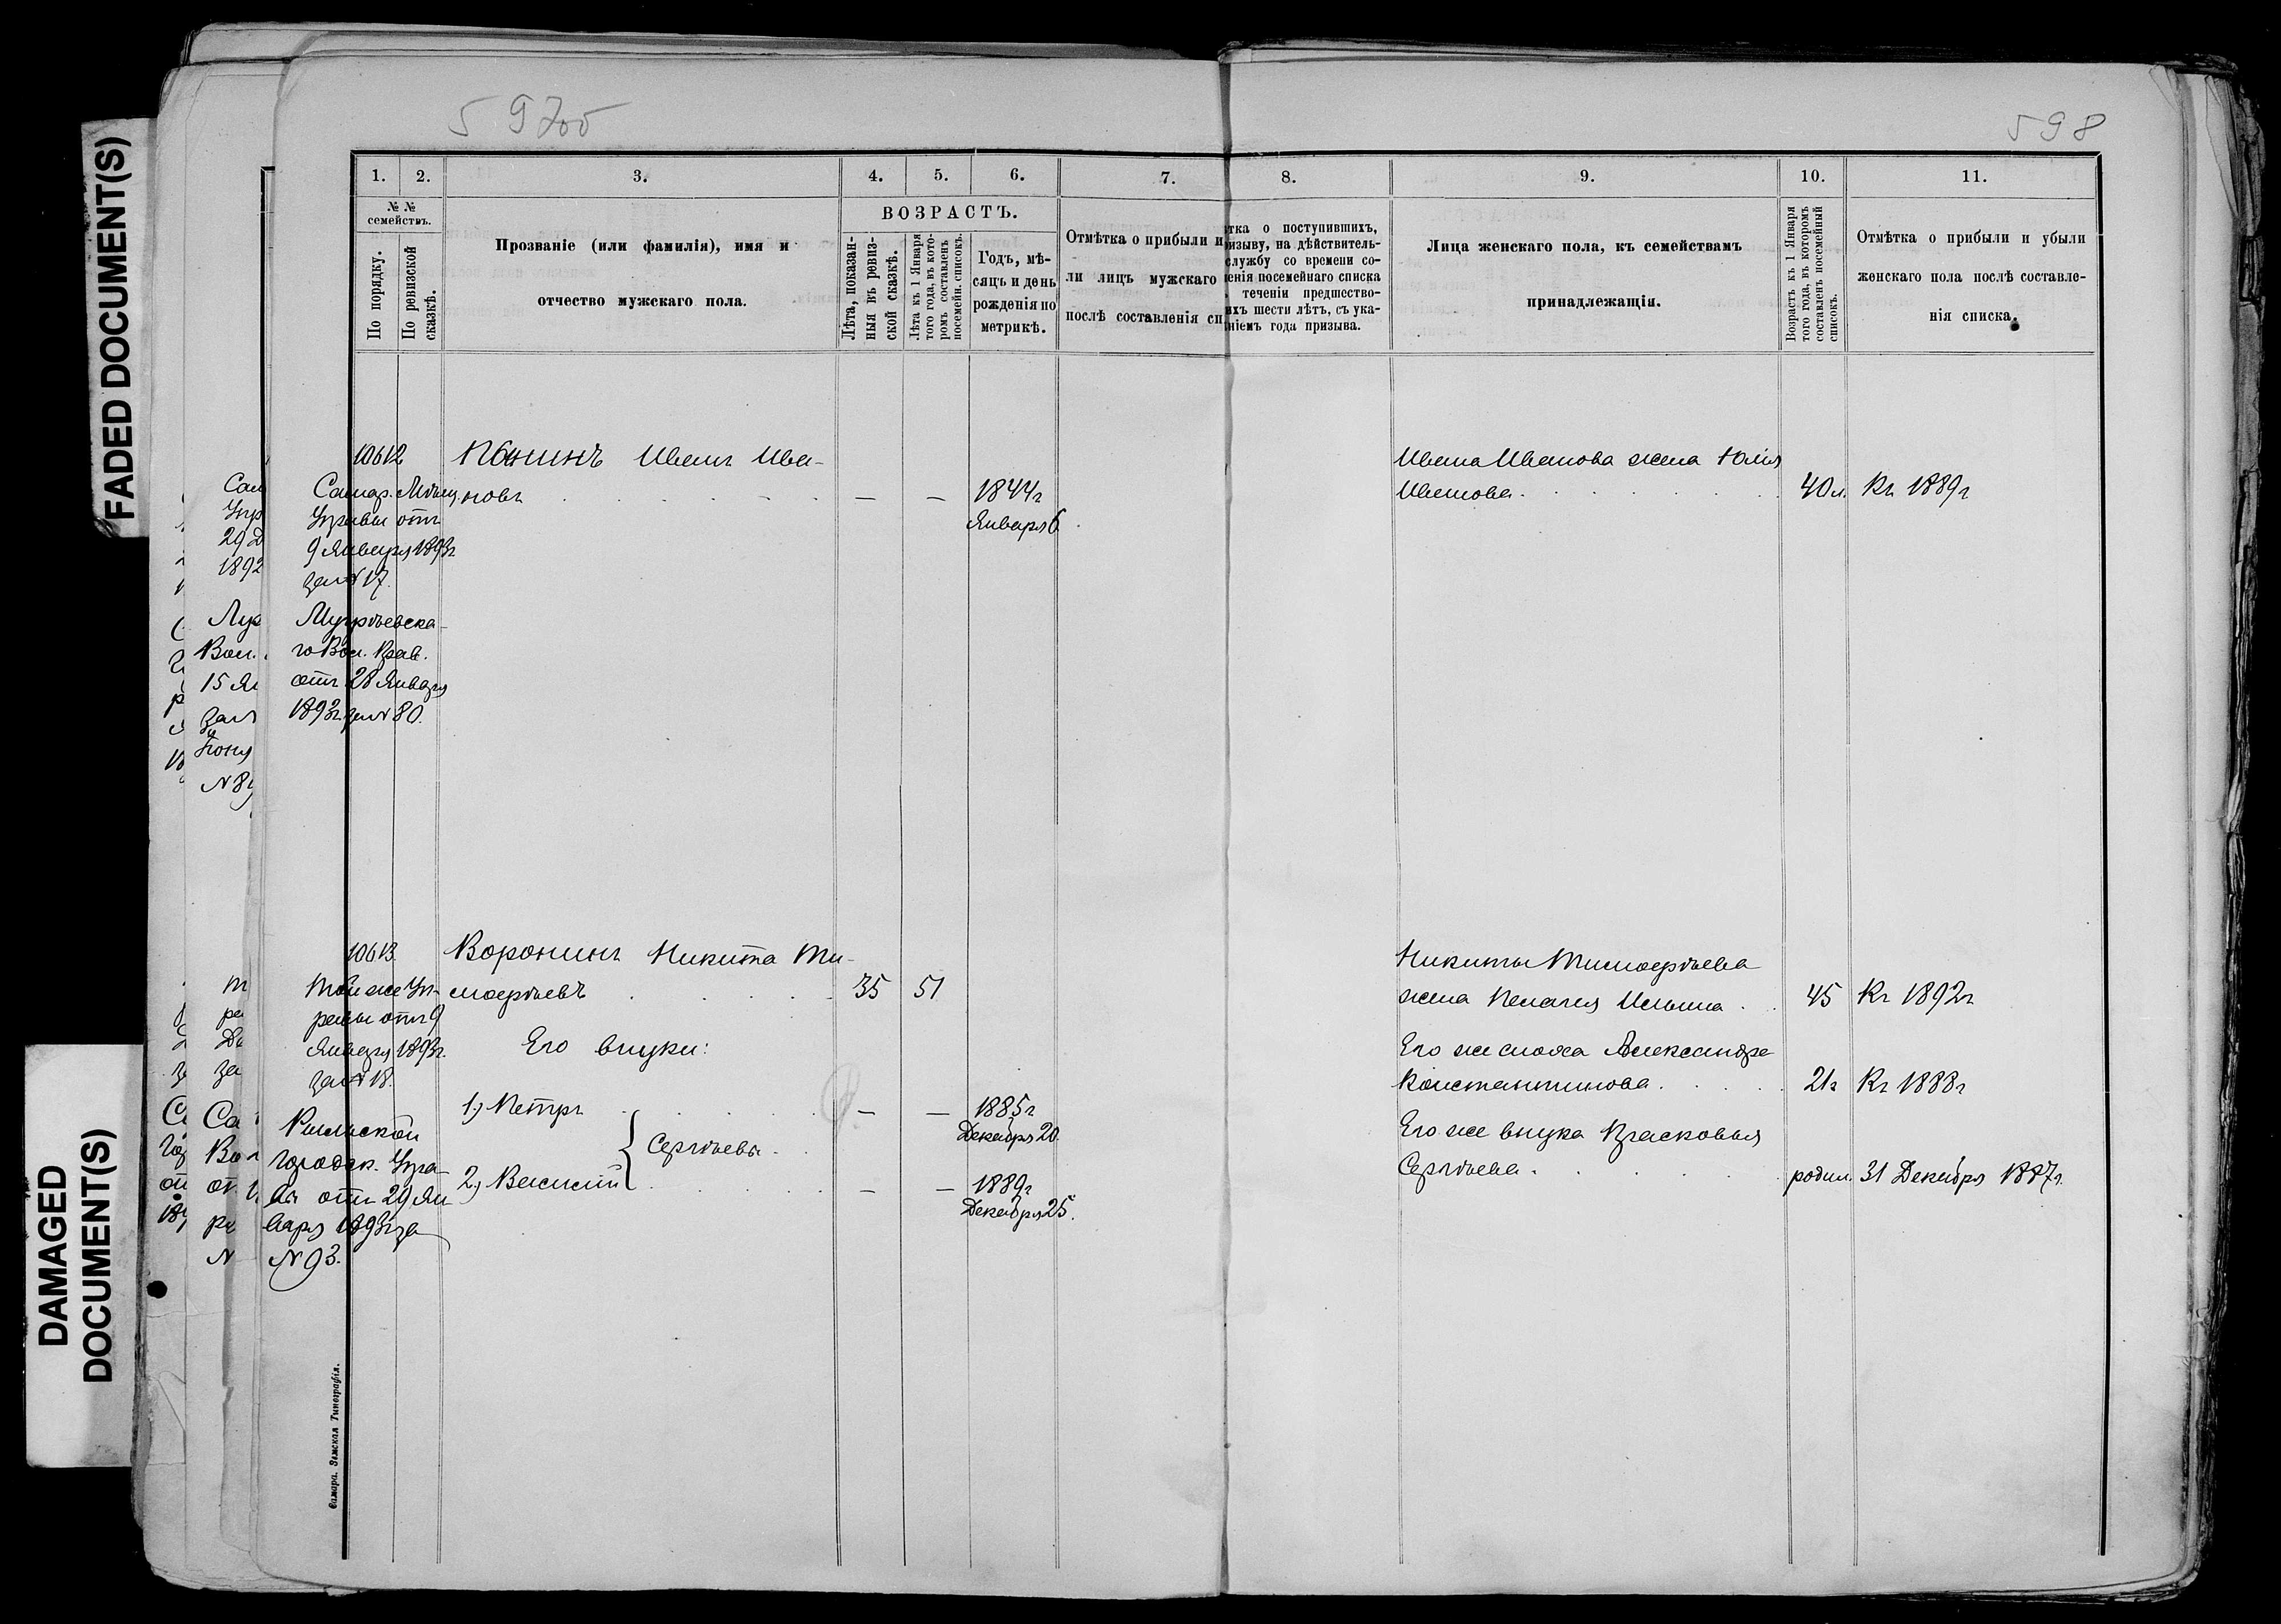 FADED DOCUMENT(S)
DAMAGED
DOCUMENT(S)
597об
598
1. 2. 3. 4. 5. 6. 7. 8. 9. 10. 11.
№ №
семействъ.
По порядку.
По ревизской
сказкѣ.
Прозваніе (или фамилія), имя и
отчество мужскаго пола.
ВОЗРАСТЪ.
Лѣта, показан-
ныя въ ревиз-
ской сказкѣ.
Лѣта къ 1 Января
того года, въ кото-
ромъ составленъ
посемейн. списокъ.
Годъ, мѣ-
сяцъ и день
рожденія по
метрикѣ.
Отмѣтка о прибыли и
ли лицъ мужскаго
послѣ составленія сп
тка о поступившихъ,
ризыву, на дѣйствитель-
службу со времени со-
енія посемейнаго списка
теченіи предшество-
ихъ шести лѣтъ, съ ука-
ніемъ года призыва.
Лица женскаго пола, къ семействамъ
принадлежащія.
Возрастъ къ 1 Января
того года, въ которомъ
составленъ посемейный
списокъ.
Отмѣтка о прибыли и убыли
женскаго пола послѣ составле-
нія списка.
10612
Самар. Мѣщ.
Управы отъ
9 Января 1893г
за № 17.
го Вол. Прав.
отъ 28 Января
1893г. за № 80.
Иванъ Ива-
новъ
— —
1844г
Января 6
Ивана Иванова жена Юлія
Иванова.
40 л.
Къ 1889г
10613.
Той же Уп-
равы отъ 9
Января 1893г.
за № 18.
городск. Упра-
вы отъ 29 Ян
варя 1893г за
№ 93.
Воронинъ Никита Ти-
мофѣевъ
35 51
Его внуки:
1.) Петръ
— —
1885г
Декабря 20.
Сергѣевы
2.) Василій
— —
1889г
Декабря 25.
Никиты Тимофѣева
жена Пелагея Ильина
45
Къ 1892г
Его же сноха Александра
Константинова.
21г
Къ 1888г
Его же внука Прасковья
Сергѣева.
родил. 31 Декабря 1887г.
Самара. Земская Типографія.